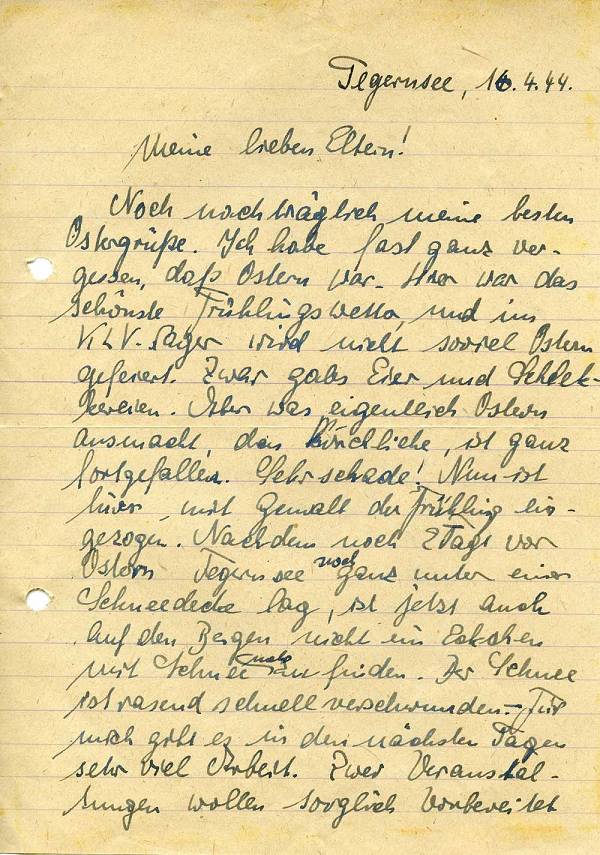 Tegernsee, 16.4.44.
Meine lieben Eltern!
Noch nachträglich meine besten
Ostergrüße. Ich habe fast ganz ver-
gessen, daß Ostern war. Hier war das
schönste Frühlingswetter, und im
KLV-Lager wird nicht soviel Ostern
gefeiert. Zwar gabs Eier und Schlek-
kereien. Aber was eigentlich Ostern
ausmacht, das Kirchliche, ist ganz
fortgefallen. Sehr schade! Nun ist
hier, mit Gewalt der Frühling ein-
gezogen. Nachdem noch 2 Tage vor
Ostern Tegernsee noch ganz unter einer
Schneedecke lag, ist jetzt auch
auf den Bergen nicht ein Eckchen
mit Schnee mehr zu finden. Der Schnee
ist rasend schnell verschwunden. – Für
mich gibt es in den nächsten Tagen
sehr viel Arbeit. Zwei Veranstal-
tungen wollen sorglich vorbereitet